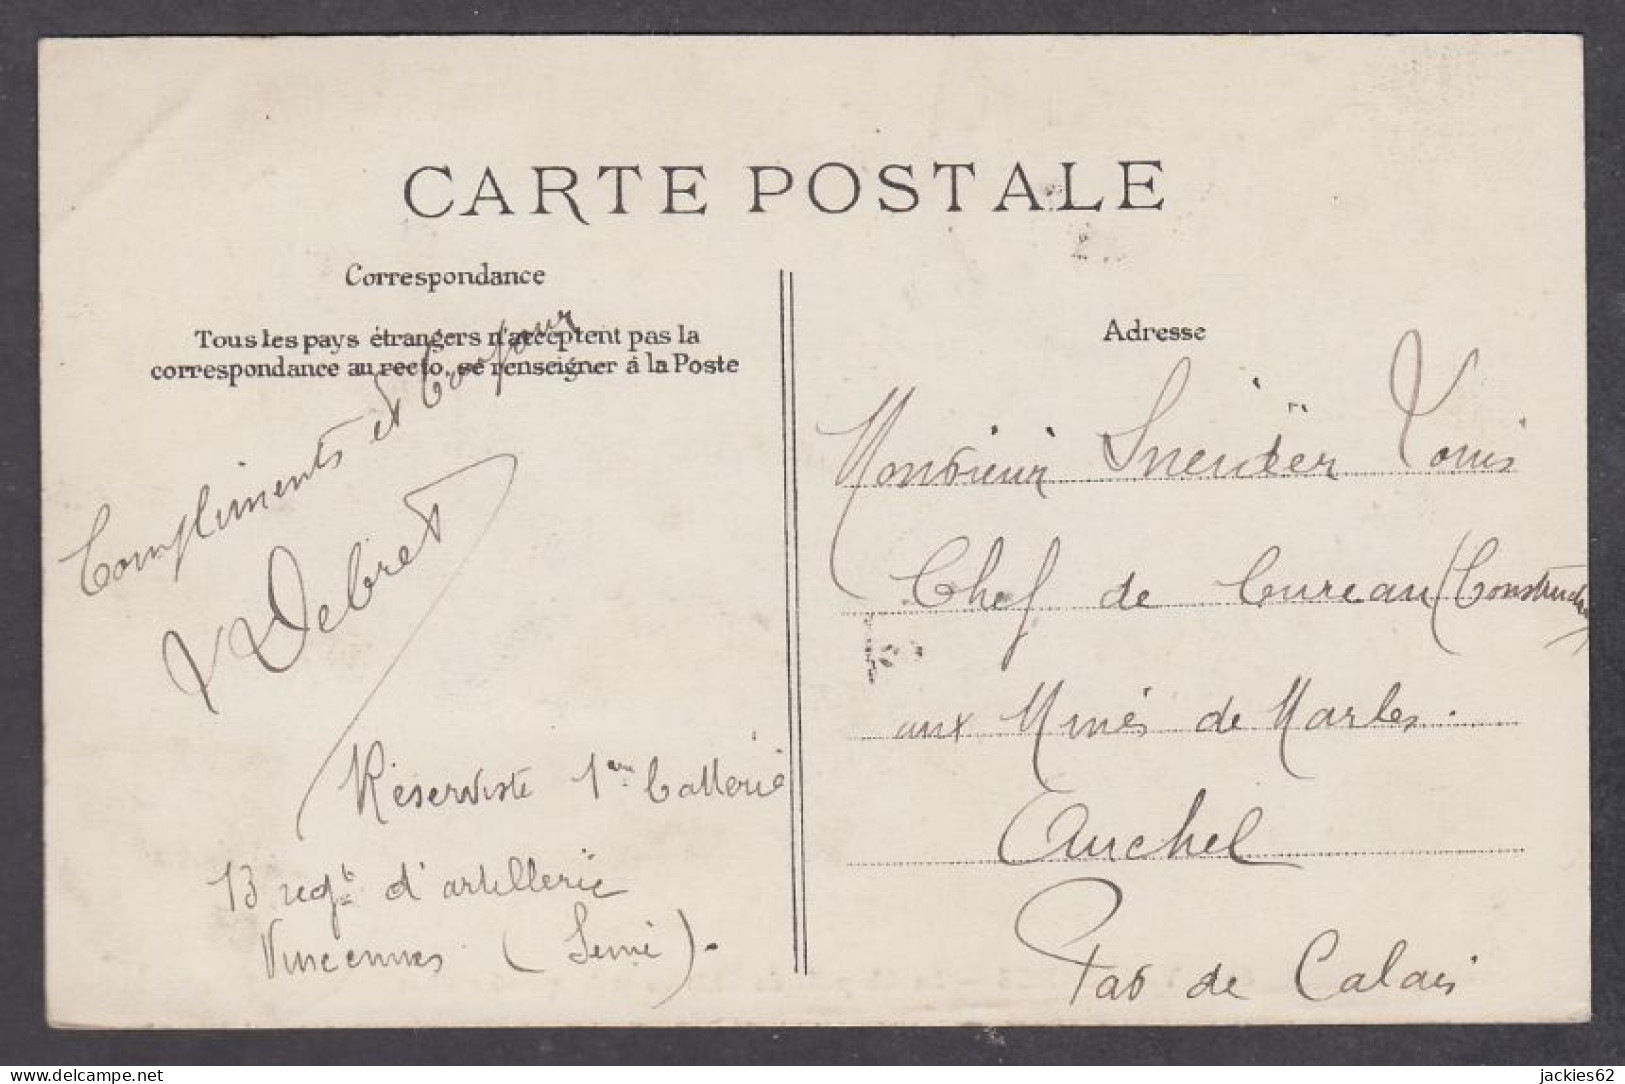 CARTE POSTALE
Correspondance
Tous les pays étrangers n'acceptent pas la
correspondance au recto, se renseigner à la Poste
Compliments et bonjour
Debret
Réserviste 1ere batterie
13 regt d'artillerie
Vincennes (Seine).
Adresse
Monsieur Sneider Louis
Chef de bureau (Construction)
aux Mines de Marles.
Auchel
Pas de Calais
delcampe.net
jackies62